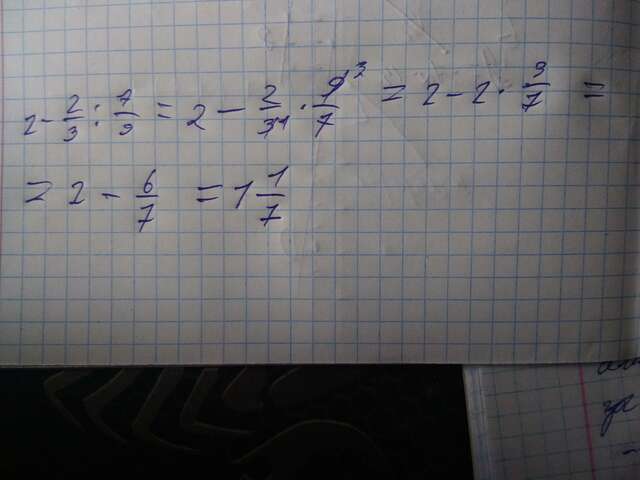 2 - 2/3 : 7/9 = 2 - 2/3 1 · 9 3/7 = 2 - 2 · 3/7 =
= 2 - 6/7 = 1 1/7
за